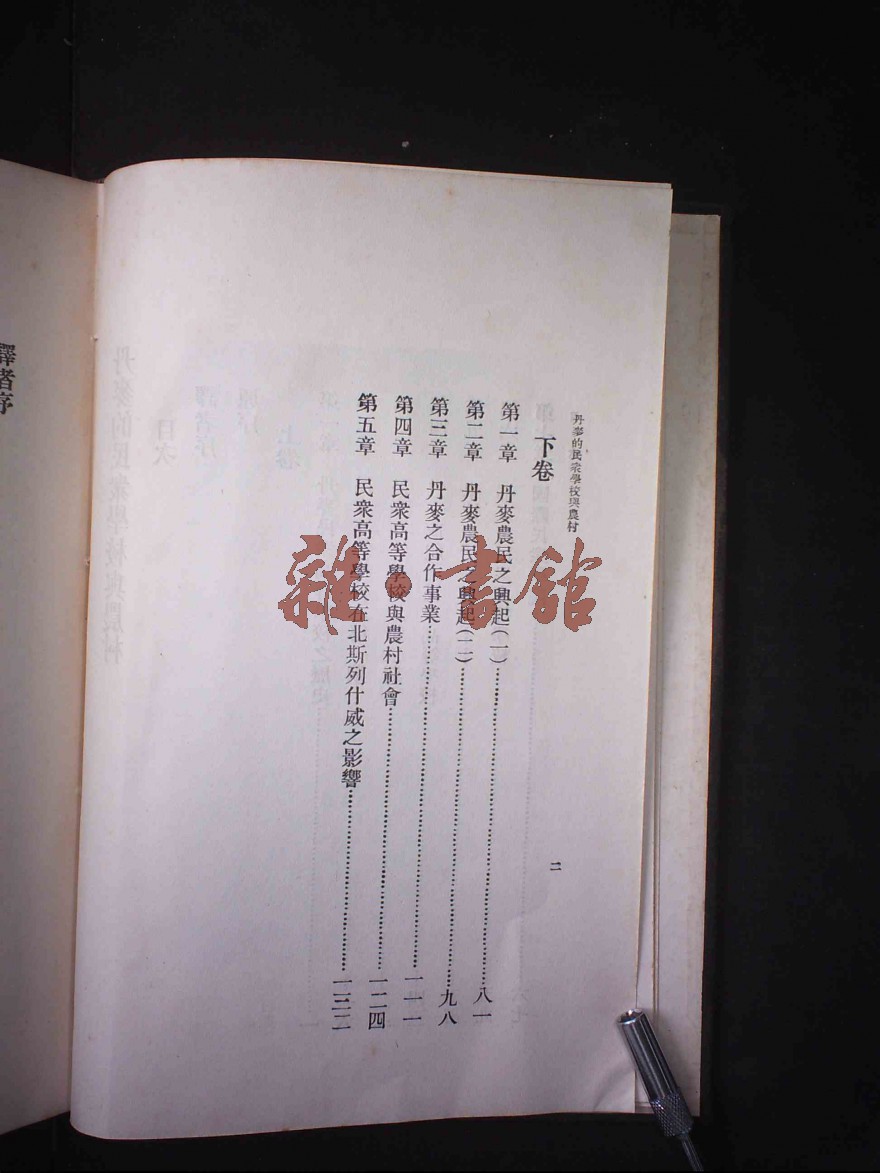 丹麥的民衆學校與農村
下卷
第一章 丹麥農民之興起(一)……八一
第二章 丹麥農民之興起(二)……九八
第三章 丹麥之合作事業……一一一
第四章 民衆高等學校與農村社會……一二四
第五章 民衆高等學校在北斯列什威之影響……一三二
二
譯者序
雜·書館